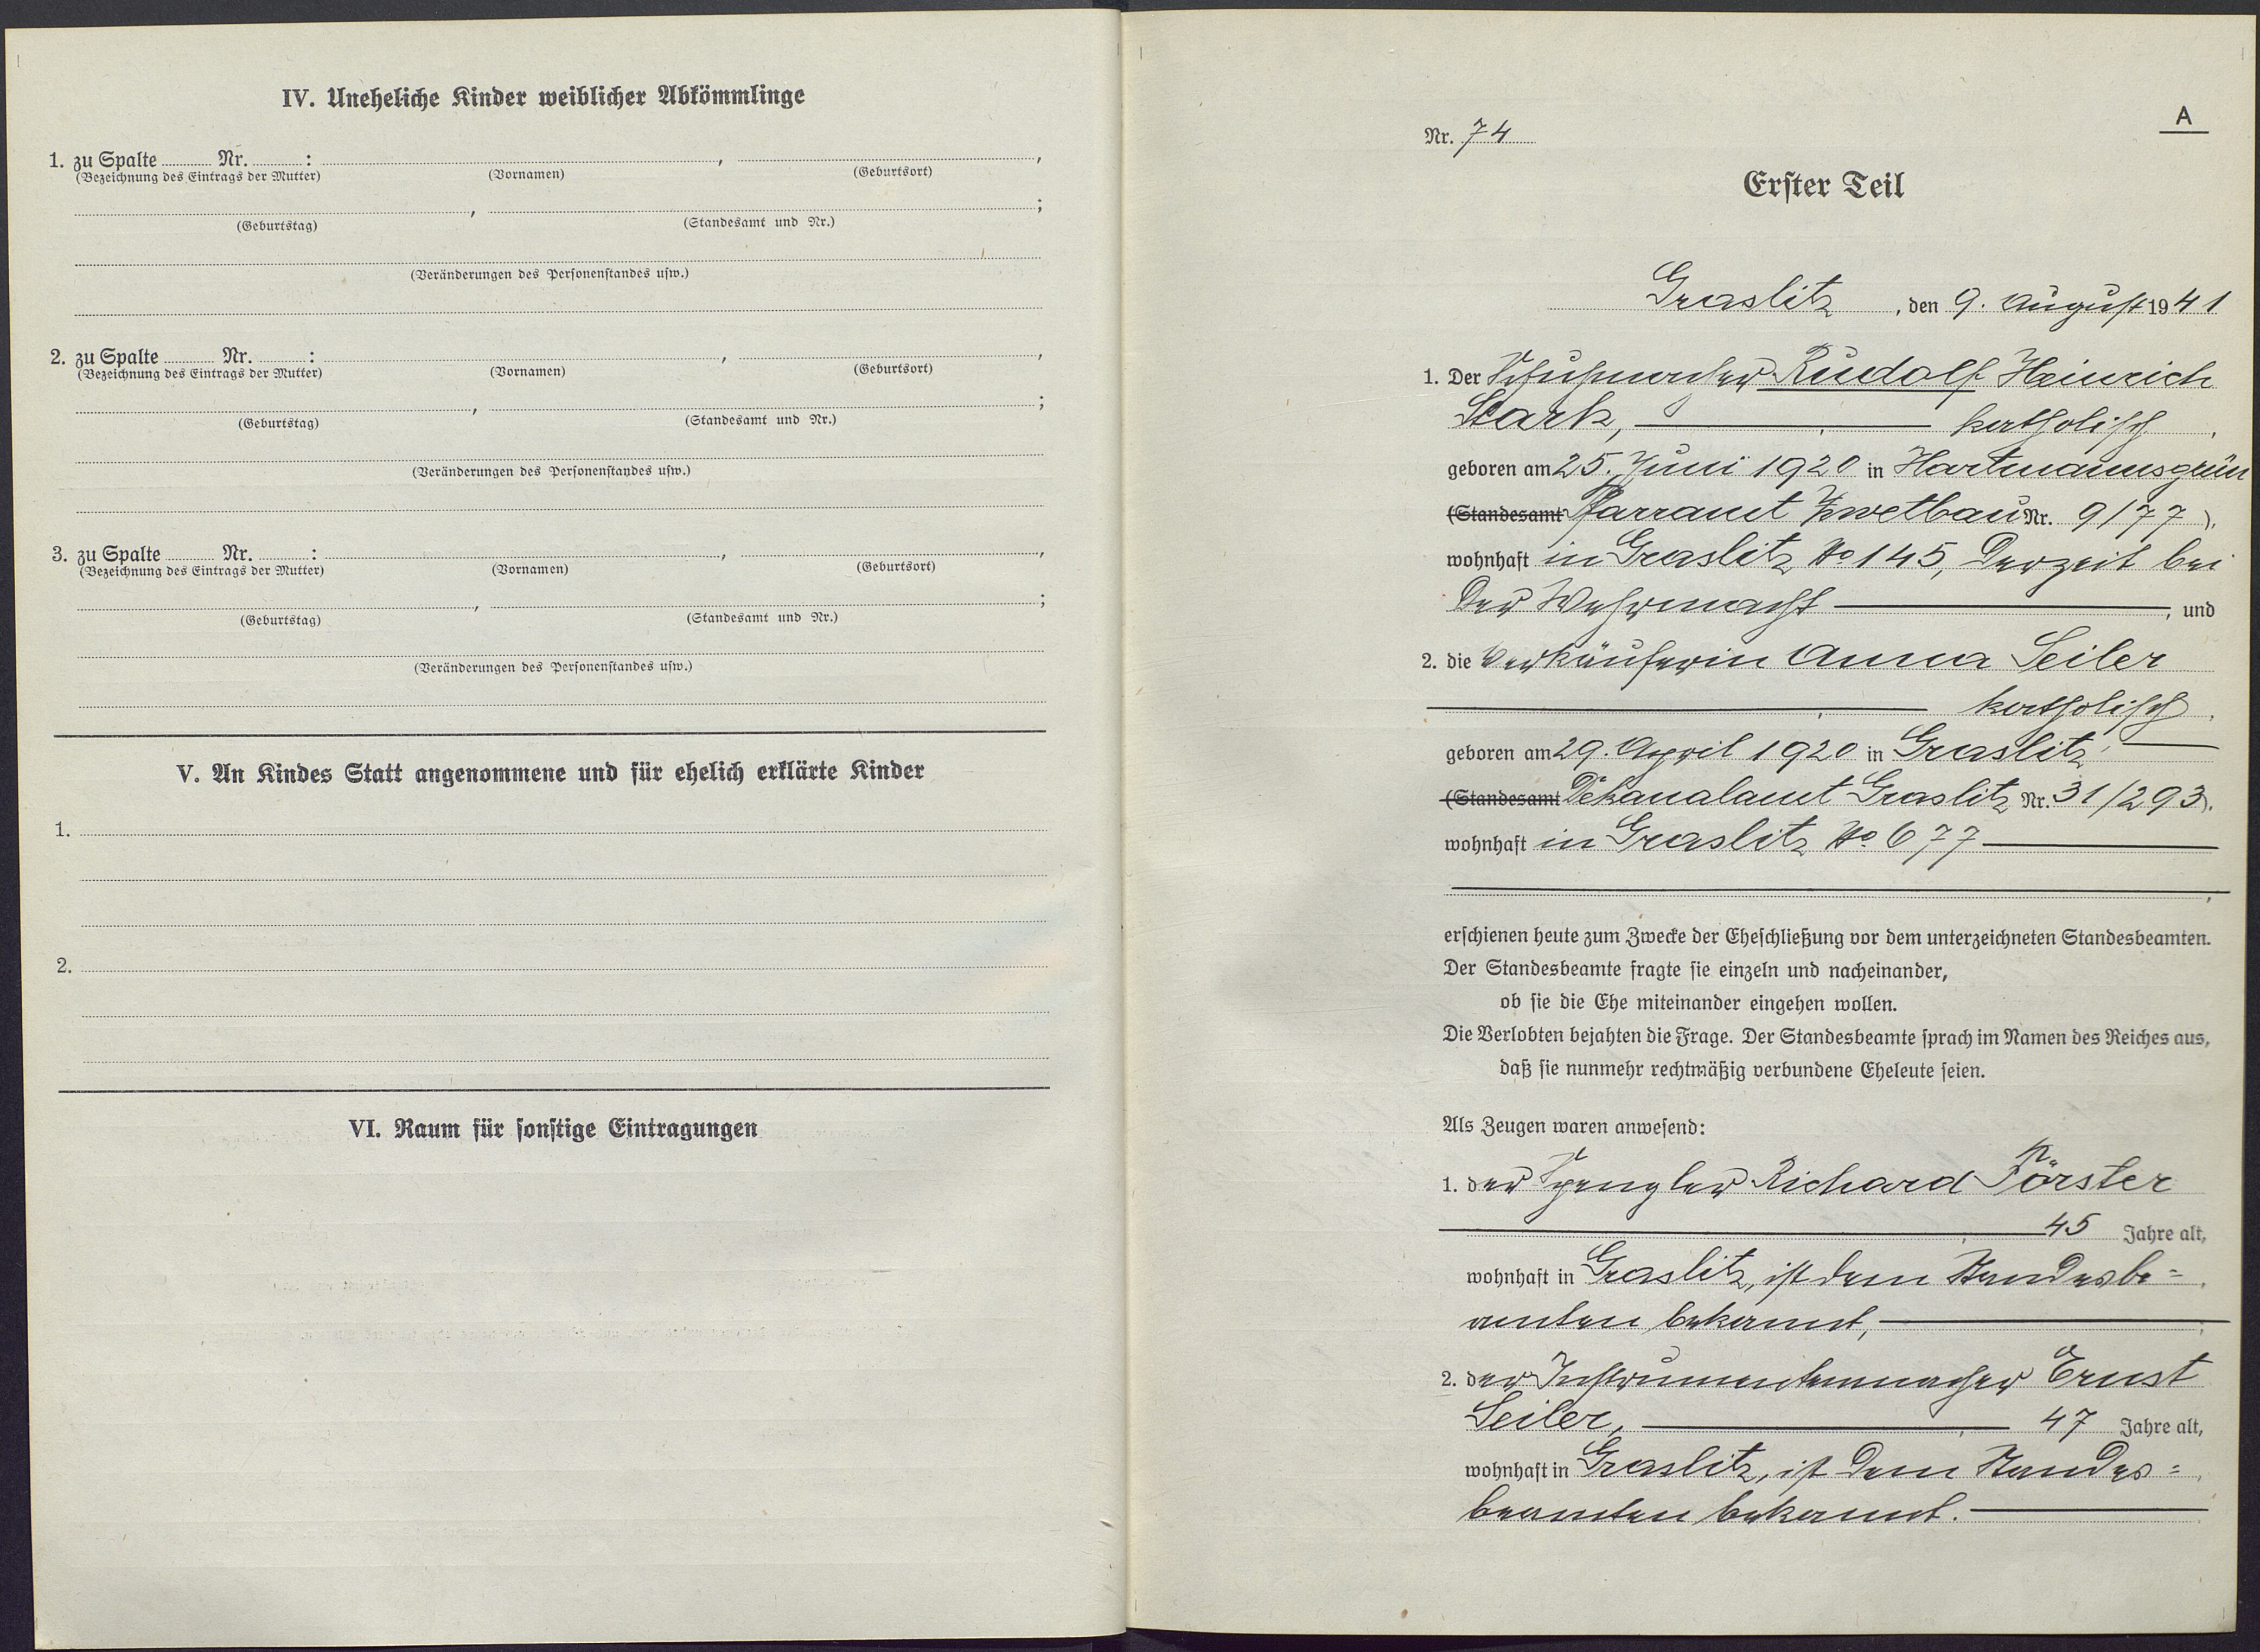 IV. Uneheliche Kinder weiblicher Abkömmlinge
1. zu Spalte Nr. : , ,
(Bezeichnung des Eintrags der Mutter) (Vornamen) (Geburtsort)
, ;
(Geburtstag) (Standesamt und Nr.)
(Veränderungen des Personenstandes usw.)
2. zu Spalte Nr. : , ,
(Bezeichnung des Eintrags der Mutter) (Vornamen) (Geburtsort)
, ;
(Geburtstag) (Standesamt und Nr.)
(Veränderungen des Personenstandes usw.)
3. zu Spalte Nr. : , ,
(Bezeichnung des Eintrags der Mutter) (Vornamen) (Geburtsort)
, ;
(Geburtstag) (Standesamt und Nr.)
(Veränderungen des Personenstandes usw.)
V. An Kindes Statt angenommene und für ehelich erklärte Kinder
1.
2.
VI. Raum für sonstige Eintragungen
A
Nr. 74
Erster Teil
Graslitz, den 9. August 1941
1. Der Schuhmacher Rudolf Heinrich
Stark, katholisch,
geboren am 25. Juni 1920 in Hartmannsgrün
(Standesamt Pfarramt Zwetbau Nr. 9/77),
wohnhaft in Graslitz No 145, derzeit bei
der Wehrmacht, und
2. die Verkäuferin Anna Seiler
katholisch,
geboren am 29. April 1920 in Graslitz,
(Standesamt Dekanalamt Graslitz Nr. 31/293),
wohnhaft in Graslitz No 677
,
erschienen heute zum Zwecke der Eheschließung vor dem unterzeichneten Standesbeamten.
Der Standesbeamte fragte sie einzeln und nacheinander,
ob sie die Ehe miteinander eingehen wollen.
Die Verlobten bejahten die Frage. Der Standesbeamte sprach im Namen des Reiches aus,
daß sie nunmehr rechtmäßig verbundene Eheleute seien.
Als Zeugen waren anwesend:
1. der Spengler Richard Förster
45 Jahre alt,
wohnhaft in Graslitz, ist dem Standesbe=
amten bekannt,
2. der Instrumentenmacher Ernst
Seiler, 47 Jahre alt,
wohnhaft in Graslitz, ist dem Standes=
beamten bekannt.